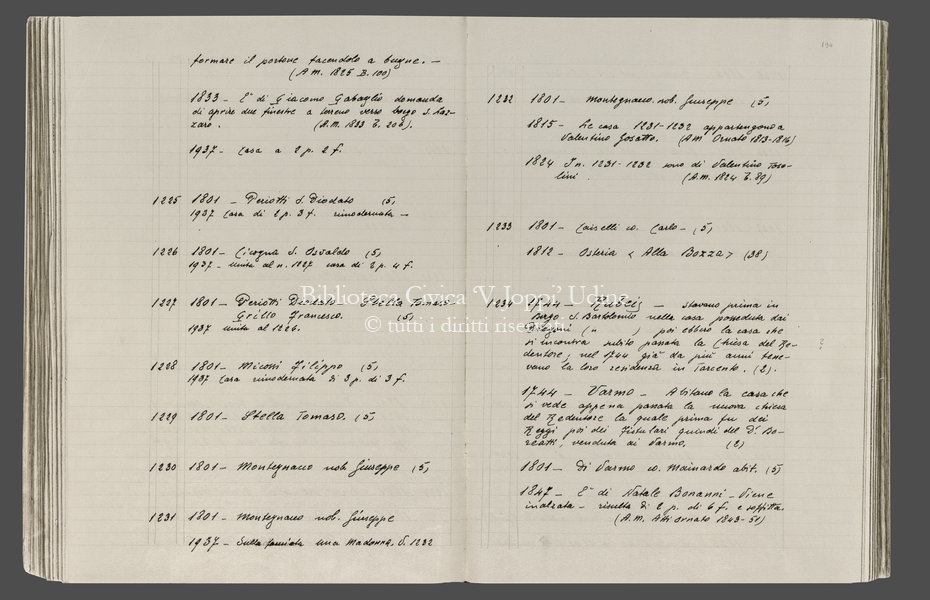 formare il portone facendolo a bugne. —
(A.M. 1825 B. 100)
1833 — E' di Giacomo Gabaglio domanda
di aprire due finestre a terreno verso borgo S. Laz-
zaro. (A.M. 1833 B. 206).
1937 — Casa a 2 p. 2 f.
1225 1801 — Periotti d. Diodato (5)
1937 Casa di 2 p. 3 f. rimodernata —
1226 1801 — Cicogna S. Osvaldo (5)
1937 — unita al n. 1227 casa di 2 p. 4 f.
1227 1801 — Periotti Diodato — Stella Tomaso
Grillo Francesco. (5)
1937 unita al 1226.
1228 1801 — Miconi Filippo (5)
1937 Casa rimodernata di 3 p. di 3 f.
1229 1801 — Stella Tomaso. (5)
1230 1801 — Montegnacco nob. Giuseppe (5)
1231 1801 — Montegnacco nob. Giuseppe
1937 — Sulla facciata una Madonna, S. 1232
194
1232 1801 — Montegnacco. nob. Giuseppe (5)
1815 — Le case 1231-1232 appartengono a
Valentino (A.M. Ornato 1813-1816)
1824 I n. 1231-1232 sono di Valentino Toso-
lini. (A.M. 1824 B. 89)
1233 1801 — Caiselli co. Carlo — (5)
1812 — Osteria < Alla Bozza > (38)
1234 1744 — — stavano prima in
Borgo S. Bartolomio nella casa posseduta dai
( " ) poi ebbero la casa che
si incontra subito passata la Chiesa del Re-
dentore, nel 1744 già da più anni tene-
vano la loro residenza in Tarcento. (2).
1744 — Varmo — Abitano la casa che
si vede appena passata la nuova chiesa
del Redentore la quale prima fu dei
Reggi poi dei Fistulari quindi del Dr Bo-
reatti, venduta ai Varmo. (2)
1801 — di Varmo co. Mainardo abit. (5)
1847 — E' di Natale Bonanni — Viene
inalzata — risulta di 2 p. di 6 f. e soffitta.
(A.M. Atti ornato 1843-51)
Biblioteca Civica 'V. Joppi' Udine
© tutti i diritti riservati